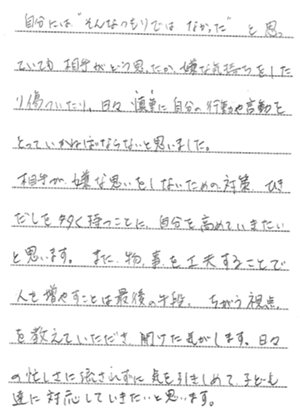 自分には"そんなつもりではなかった"と思っ
ていても相手がどう思ったか、嫌な気持ちをした
り傷ついたり、日々慎重に自分の行動や言動を
とっていかねばならないと思いました。
相手が嫌な思いをしないための対策、ひき
だしを多く持つことに、自分を高めていきたい
と思います。また、物、事を工夫することで
人を増やすことは最後の手段、ちがう視点
を教えていただき、開けた気がします。日々
の忙しさに流されずに気を引きしめて、子ども
達に対応していきたいと思います。